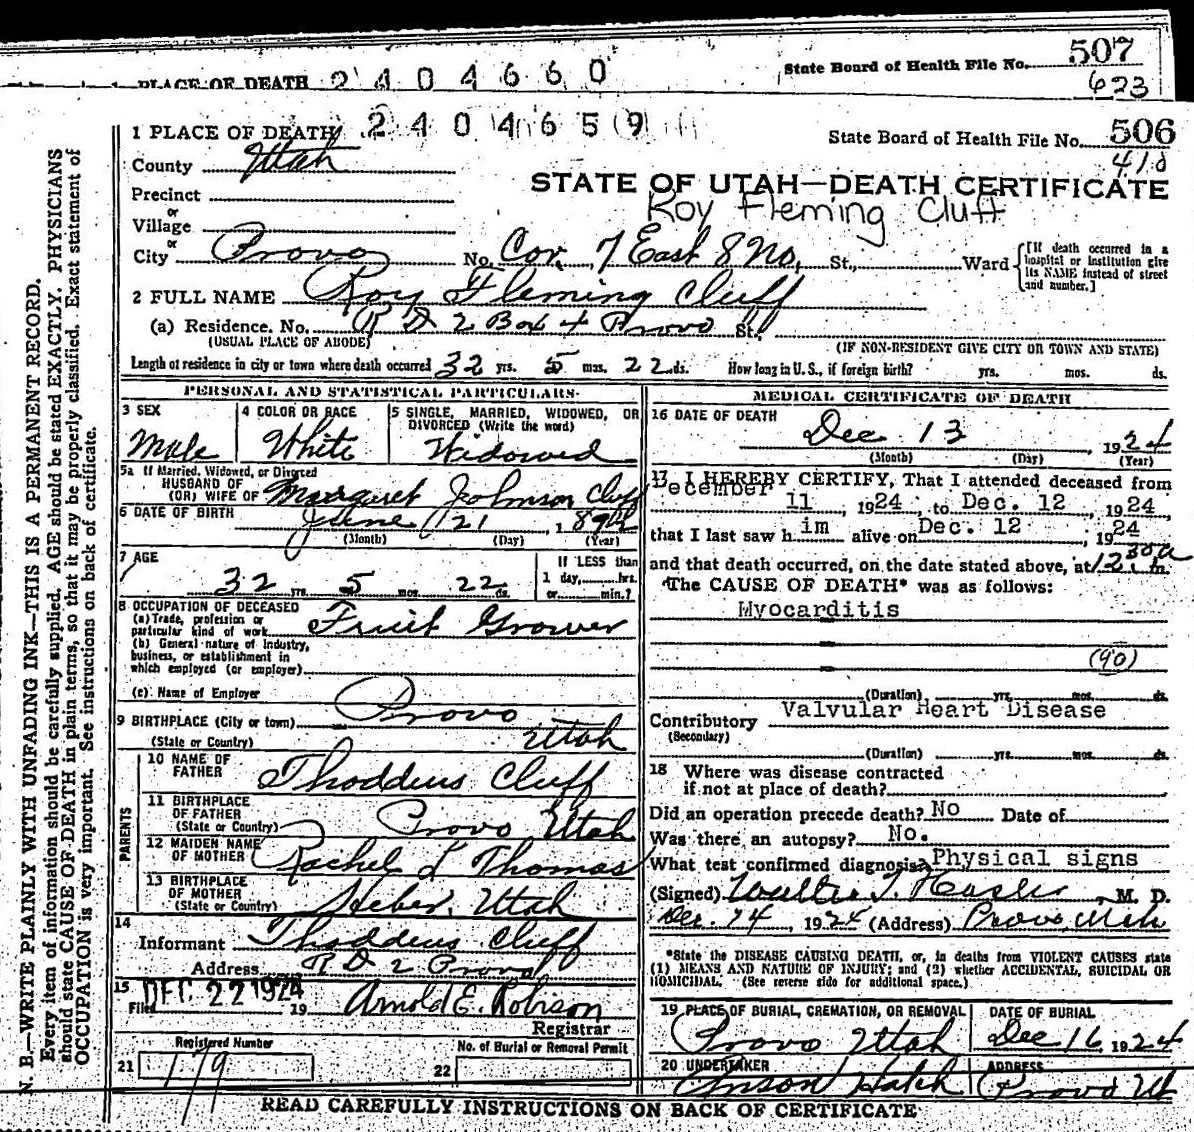 1 PLACE OF DEATH 2404660
State Board of Health File No. 507
623
1 PLACE OF DEATH 2404659
State Board of Health File No. 506
410
County Utah
STATE OF UTAH—DEATH CERTIFICATE
Precinct
Roy Fleming Cluff
or
Village
or
City Provo No. Cor. 7 East 8 No. St., Ward
[If death occurred in a hospital or institution give its NAME instead of street and number.]
2 FULL NAME Roy Fleming Cluff
(a) Residence. No. R D 2 Box 4 Provo St.
(USUAL PLACE OF ABODE) (IF NON-RESIDENT GIVE CITY OR TOWN AND STATE)
Length of residence in city or town where death occurred 32 yrs. 5 mos. 22 ds. How long in U. S., if foreign birth? yrs. mos. ds.
PERSONAL AND STATISTICAL PARTICULARS
3 SEX
Male
4 COLOR OR RACE
White
5 SINGLE, MARRIED, WIDOWED, OR
DIVORCED (Write the word)
Widowed
5a If Married, Widowed, or Divorced
HUSBAND OF
(OR) WIFE OF Margaret Johnson Cluff
6 DATE OF BIRTH June 21, 1892
(Month) (Day) (Year)
7 AGE
32 yrs. 5 mos. 22 ds.
If LESS than
1 day, hrs.
or min.?
8 OCCUPATION OF DECEASED
(a) Trade, profession or
particular kind of work Fruit Grower
(b) General nature of Industry,
business, or establishment in
which employed (or employer)
(c) Name of Employer
9 BIRTHPLACE (City or town) Provo
(State or Country) Utah
PARENTS
10 NAME OF
FATHER Thaddeus Cluff
11 BIRTHPLACE
OF FATHER
(State or Country) Provo Utah
12 MAIDEN NAME
OF MOTHER Rachel L Thomas
13 BIRTHPLACE
OF MOTHER
(State or Country) Heber, Utah
14
Informant Thaddeus Cluff
Address R D 2 Provo
15 DEC 22 1924
Filed 19 Arnold E. Robison
Registrar
Registered Number
21 179
No. of Burial or Removal Permit
22
MEDICAL CERTIFICATE OF DEATH
16 DATE OF DEATH
Dec 13 1924
(Month) (Day) (Year)
17 I HEREBY CERTIFY, That I attended deceased from
December 11, 1924, to Dec. 12, 1924,
that I last saw him alive on Dec. 12, 1924
and that death occurred, on the date stated above, at 12 30 a m.
The CAUSE OF DEATH* was as follows:
Myocarditis
(90)
(Duration) yrs. mos. ds.
Contributory Valvular Heart Disease
(Secondary)
(Duration) yrs. mos. ds.
18 Where was disease contracted
if not at place of death?
Did an operation precede death? No Date of
Was there an autopsy? No.
What test confirmed diagnosis? Physical signs
(Signed) Walter T. Hasler, M. D.
Dec. 14, 1924 (Address) Provo, Utah
*State the DISEASE CAUSING DEATH, or, in deaths from VIOLENT CAUSES state
(1) MEANS AND NATURE OF INJURY; and (2) whether ACCIDENTAL, SUICIDAL OR
HOMICIDAL. (See reverse side for additional space.)
19 PLACE OF BURIAL, CREMATION, OR REMOVAL
Provo Utah
DATE OF BURIAL
Dec 16, 1924
20 UNDERTAKER
Anson Hatch
ADDRESS
Provo Ut
READ CAREFULLY INSTRUCTIONS ON BACK OF CERTIFICATE
N. B.—WRITE PLAINLY WITH UNFADING INK—THIS IS A PERMANENT RECORD.
Every item of information should be carefully supplied. AGE should be stated EXACTLY. PHYSICIANS
should state CAUSE OF DEATH in plain terms, so that it may be properly classified. Exact statement of
OCCUPATION is very important. See instructions on back of certificate.